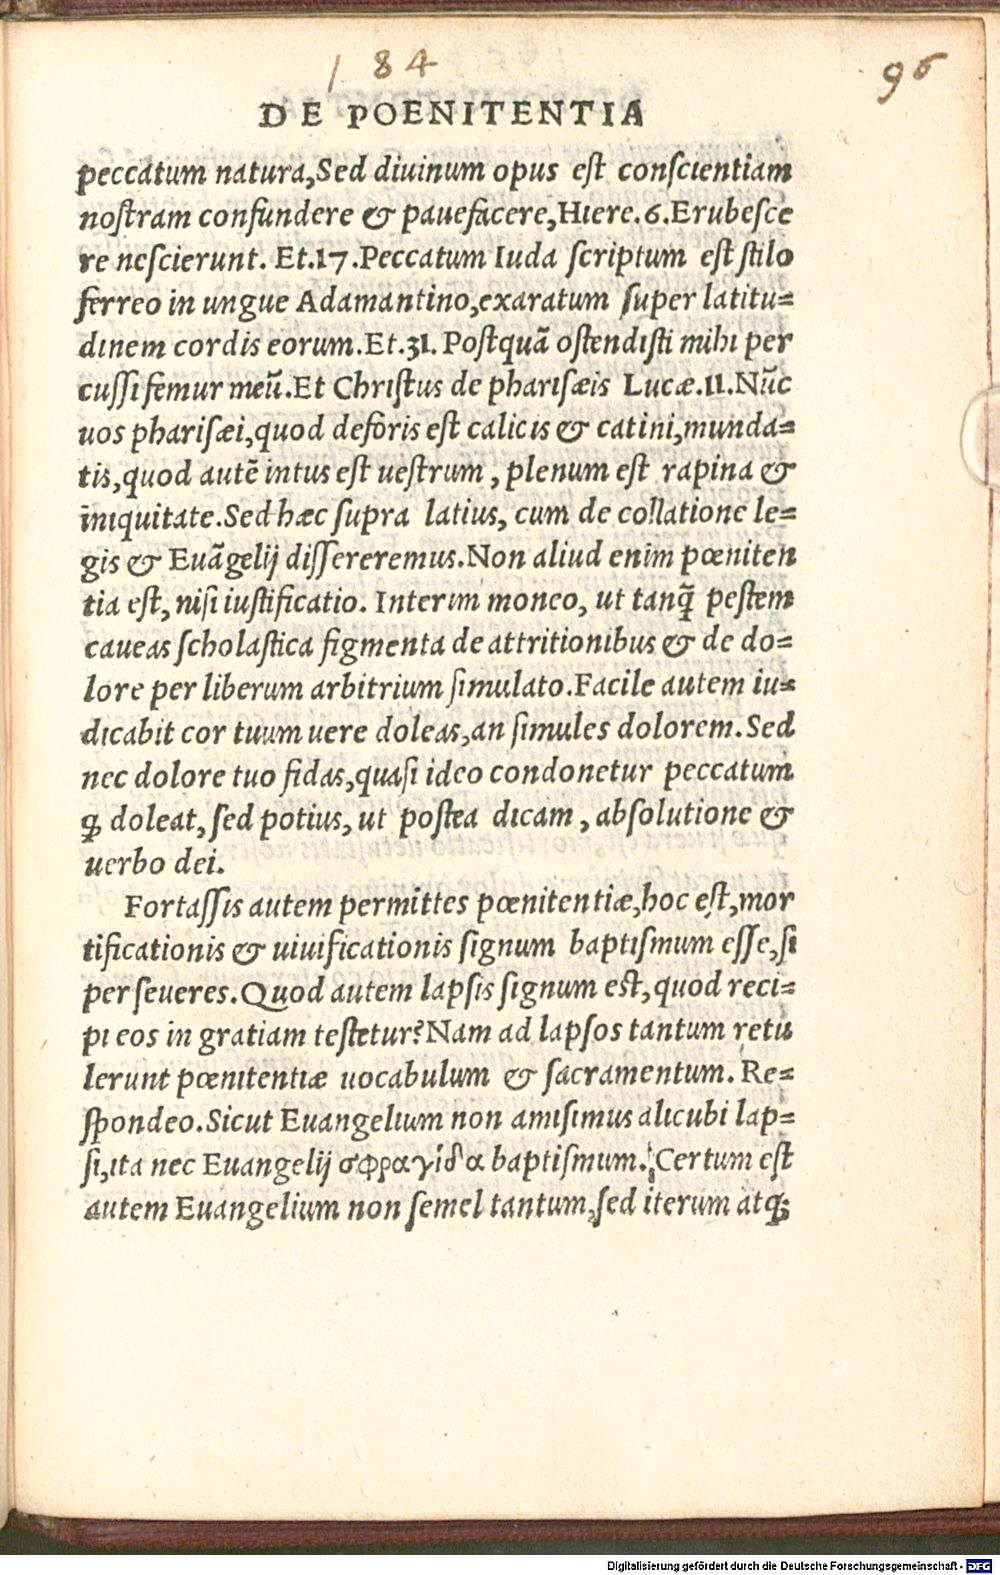 184
96
DE POENITENTIA
peccatum natura,Sed diuinum opus est conscientiam
nostram confundere & pauefacere,Hiere.6.Erubesce
re nescierunt. Et.17.Peccatum Iuda scriptum est stilo
ferreo in ungue Adamantino,exaratum super latitu=
dinem cordis eorum.Et.31.Postquã ostendisti mihi per
cussi femur meũ.Et Christus de pharisæis Lucæ.11.Nũc
uos pharisæi,quod deforis est calicis & catini,munda=
tis,quod autẽ intus est uestrum, plenum est rapina &
iniquitate.Sed hæc supra latius, cum de collatione le=
gis & Euãgelij dissereremus.Non aliud enim pœniten
tia est, nisi iustificatio. Interim moneo, ut tanq̃ pestem
caueas scholastica figmenta de attritionibus & de do=
lore per liberum arbitrium simulato.Facile autem iu=
dicabit cor tuum uere doleas,an simules dolorem.Sed
nec dolore tuo fidas,quasi ideo condonetur peccatum
ꝙ doleat, sed potius, ut postea dicam, absolutione &
uerbo dei.
Fortassis autem permittes pœnitentiæ,hoc est,mor
tificationis & uiuificationis signum baptismum esse,si
perseueres.Quod autem lapsis signum est,quod reci=
pi eos in gratiam testetur?Nam ad lapsos tantum retu
lerunt pœnitentiæ uocabulum & sacramentum. Re=
spondeo.Sicut Euangelium non amisimus alicubi lap=
si,ita nec Euangelij σφραγίδα baptismum. Certum est
autem Euangelium non semel tantum,sed iterum atq;
Digitalisierung gefördert durch die Deutsche Forschungsgemeinschaft - DFG